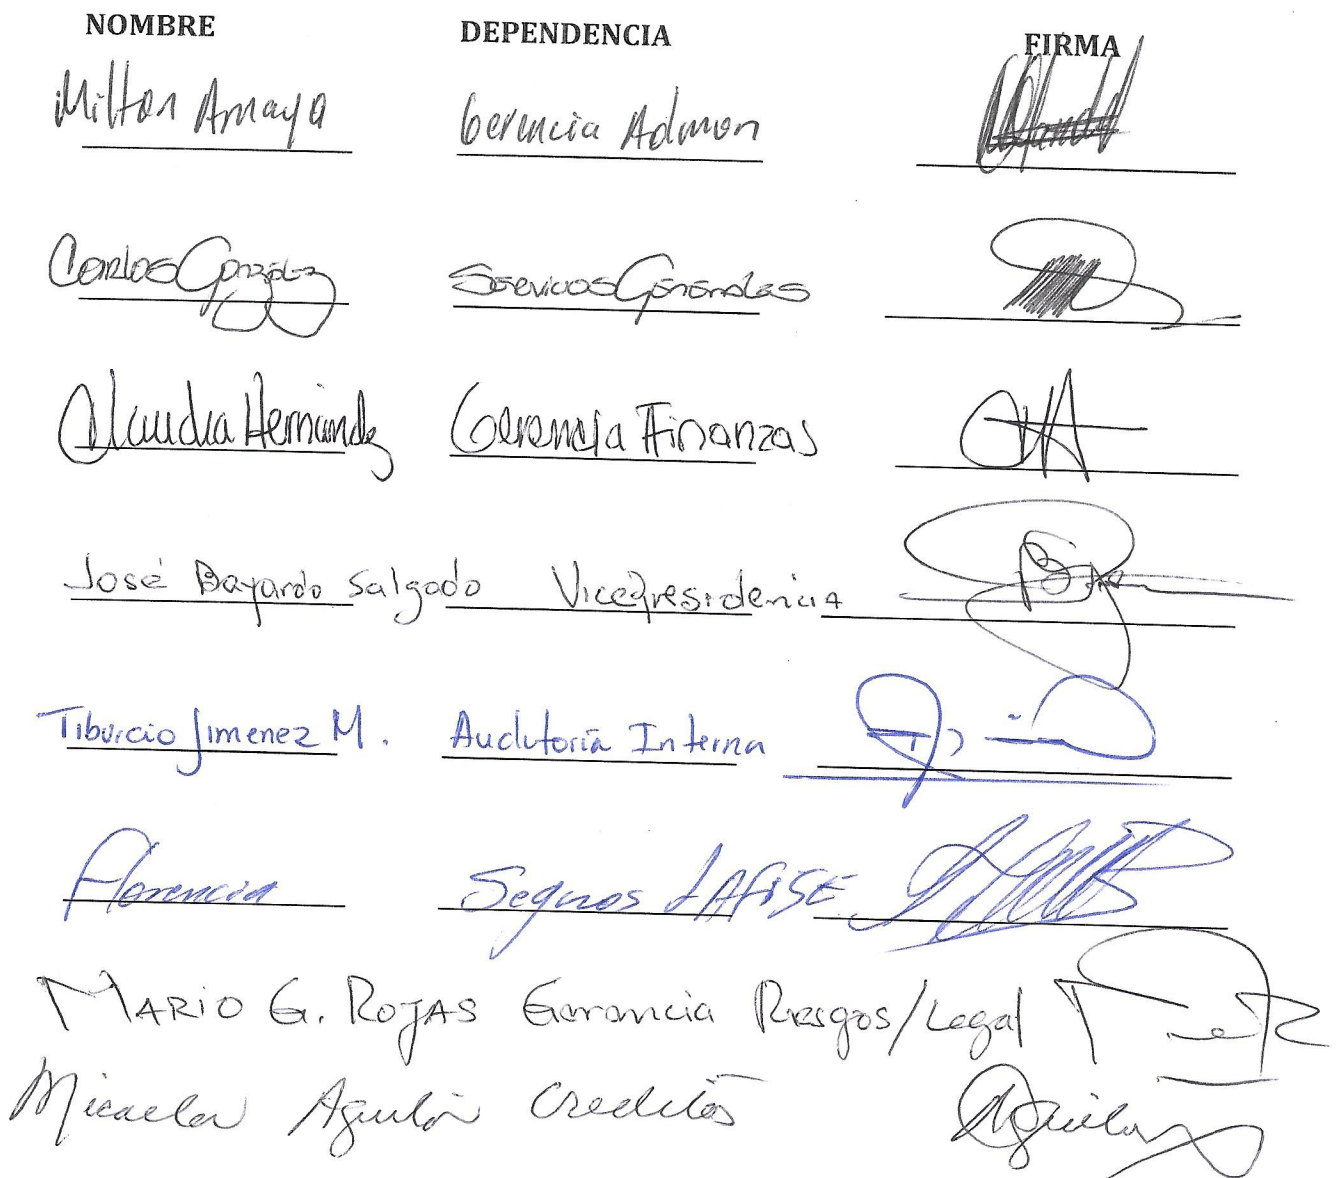 NOMBRE DEPENDENCIA FIRMA
Milton Amaya Gerencia Admon
Carlos González Servicios Generales
Claudia Hernández Gerencia Finanzas
José Bayardo Salgado Vicepresidencia
Tiburcio Jimenez M. Auditoría Interna
Florencia Seguros LAFISE
MARIO G. ROJAS Gerencia Riesgos/Legal
Micaela Aguilar Creditos Aguilar